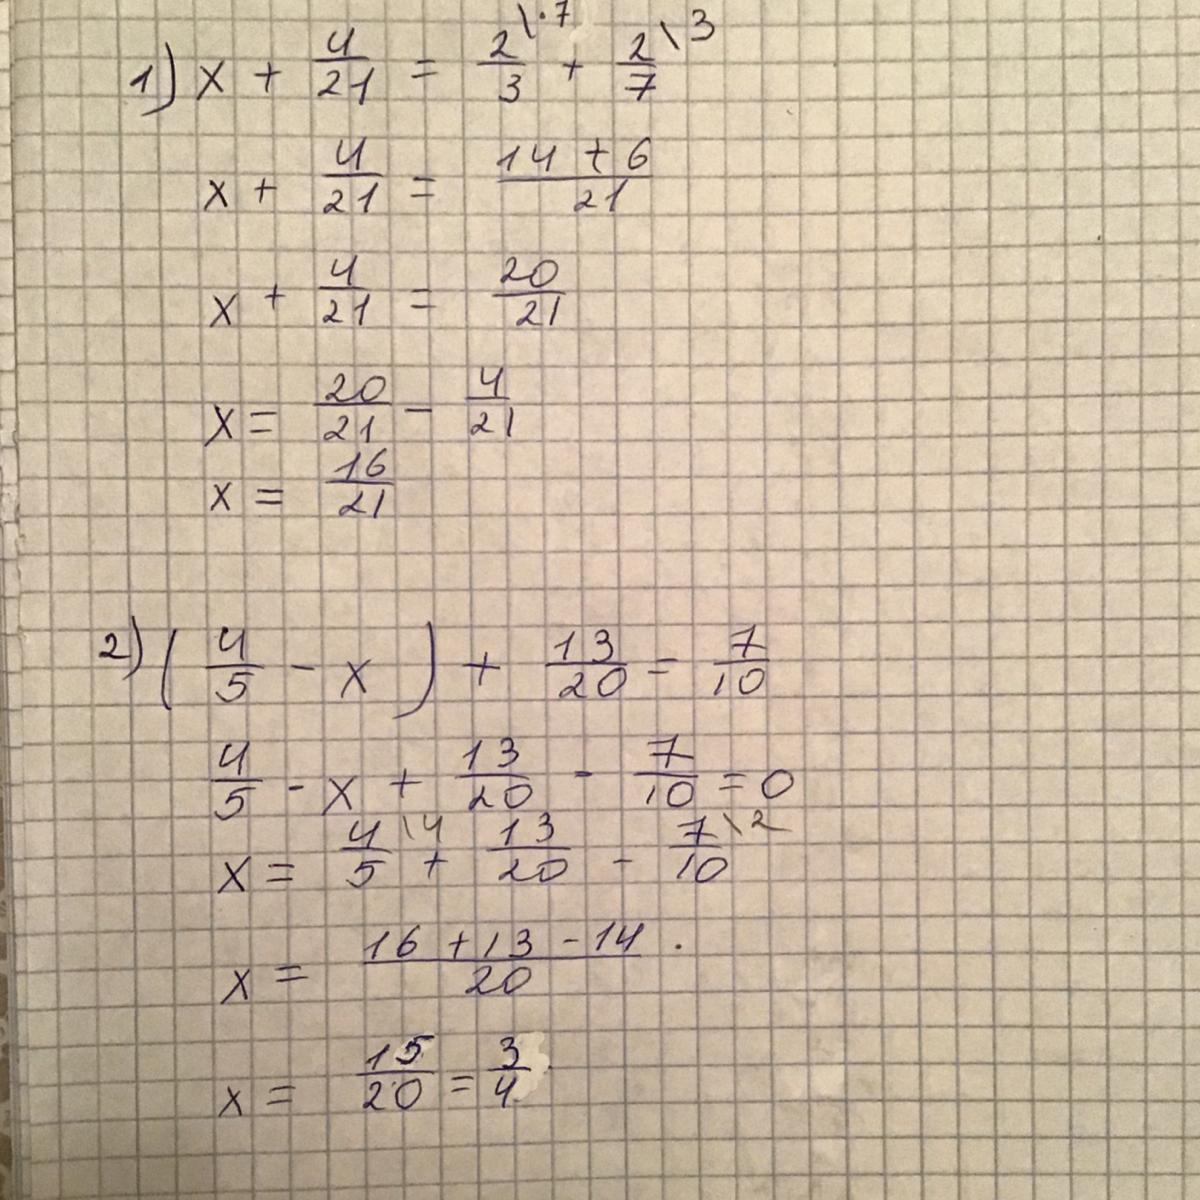 1) x + 4/21 = 2/3 \·7 + 2/7 \3
x + 4/21 = (14 + 6)/21
x + 4/21 = 20/21
x = 20/21 - 4/21
x = 16/21
2) (4/5 - x) + 13/20 = 7/10
4/5 - x + 13/20 - 7/10 = 0
x = 4/5 \4 + 13/20 - 7/10 \2
x = (16 + 13 - 14)/20 .
x = 15/20 = 3/4